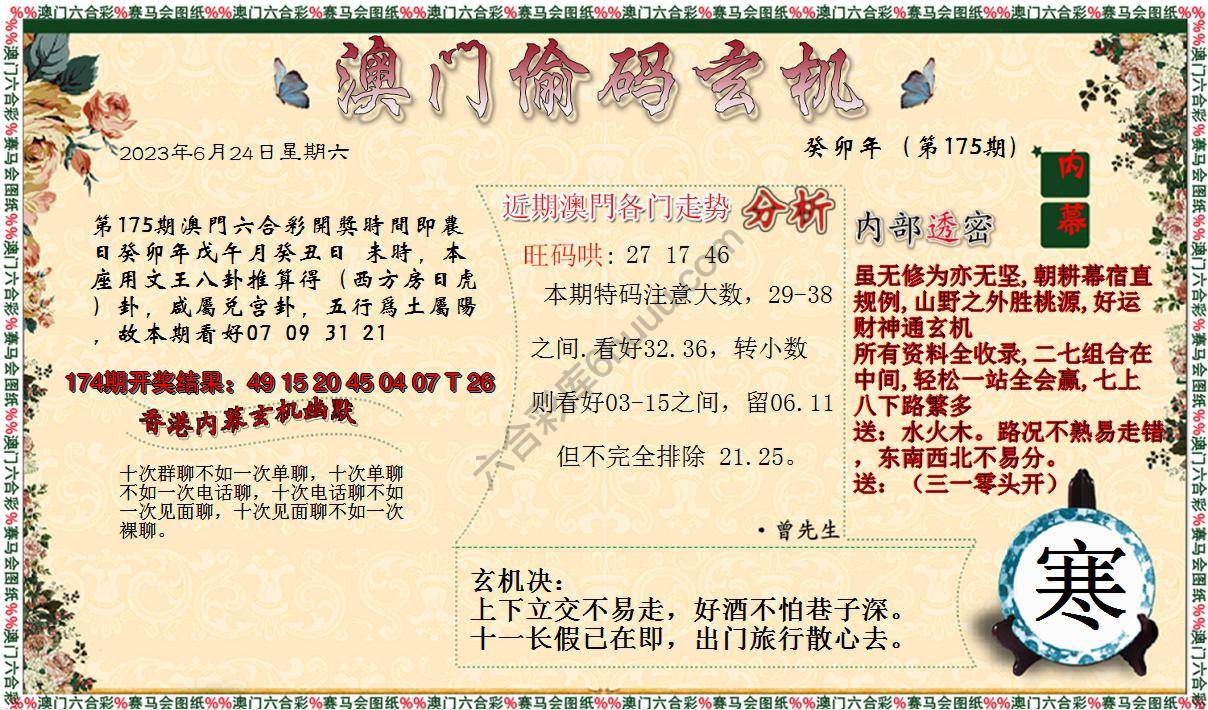 %%澳门六合彩%赛马会图纸%%澳门六合彩%赛马会图纸%%澳门六合彩%赛马会图纸%%澳门六合彩%赛马会图纸%%澳门六合彩%赛马会图纸%%澳门六合彩%赛马会图纸%%
澳门偷码玄机
2023年6月24日星期六
癸卯年（第175期）
内幕
第175期澳門六合彩開獎時間即農
日癸卯年戊午月癸丑日 未時，本
座用文王八卦推算得（西方房日虎
）卦，咸屬兑宫卦，五行爲土屬陽
，故本期看好07 09 31 21
174期开奖结果：49 15 20 45 04 07 T 26
香港内幕玄机幽默
十次群聊不如一次单聊，十次单聊
不如一次电话聊，十次电话聊不如
一次见面聊，十次见面聊不如一次
裸聊。
近期澳門各门走势 分析
旺码哄: 27 17 46
本期特码注意大数，29-38
之间.看好32.36，转小数
则看好03-15之间，留06.11
但不完全排除 21.25。
·曾先生
内部透密
虽无修为亦无坚,朝耕幕宿直
规例,山野之外胜桃源,好运
财神通玄机
所有资料全收录,二七组合在
中间,轻松一站全会赢,七上
八下路繁多
送：水火木。路况不熟易走错
，东南西北不易分。
送：（三一零头开）
玄机决：
上下立交不易走，好酒不怕巷子深。
十一长假已在即，出门旅行散心去。
寒
%%澳门六合彩%赛马会图纸%%澳门六合彩%赛马会图纸%%澳门六合彩%赛马会图纸%%澳门六合彩%赛马会图纸%%澳门六合彩%赛马会图纸%%澳门六合彩%赛马会图纸%%